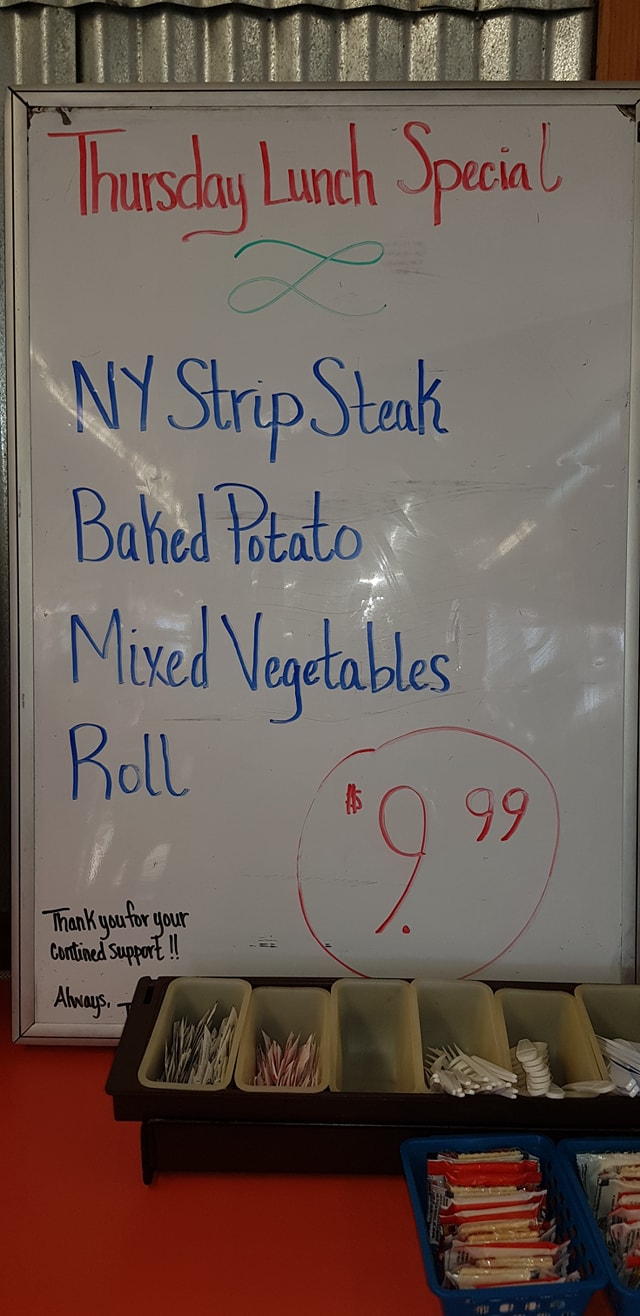 Thursday Lunch Special
NY Strip Steak
Baked Potato
Mixed Vegetables
Roll
$9.99
Thank you for your
contined support !!
Always,